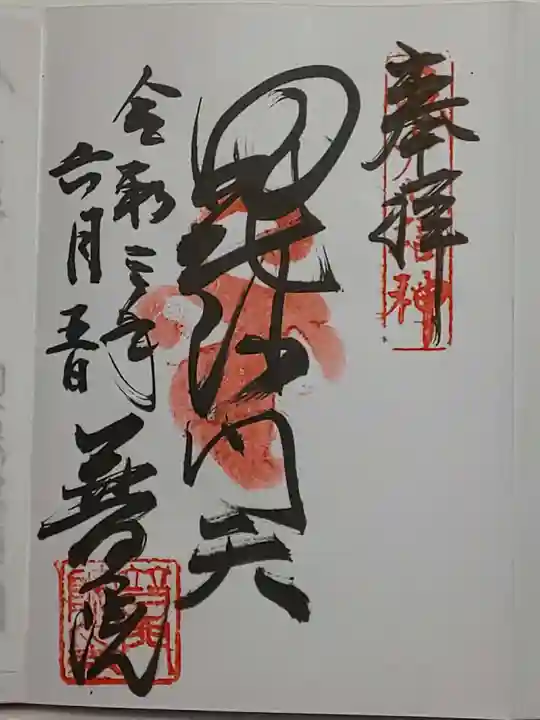 奉拝
毘沙門天
令和三年
六月五日
普門院